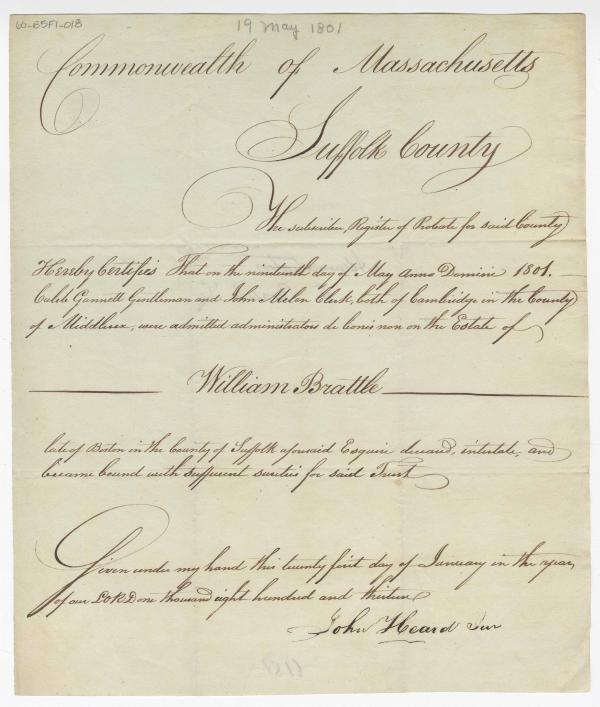 W-B5F1-018
19 May 1801
Commonwealth of Massachusetts
Suffolk County
The subscriber, Register of Probate for said County
Hereby Certifies That on the nineteenth day of May Anno Domini 1801.
Caleb Gannett Gentleman and John Melen Clerk, both of Cambridge in the County
of Middlesex, were admitted administrators de bonis non on the Estate of
William Brattle
late of Boston in the County of Suffolk aforesaid Esquire deceased, intestate, and
became bound with sufficient sureties for said Trust
Given under my hand this twenty first day of January in the year
of our LORD one thousand eight hundred and thirteen
John Heard